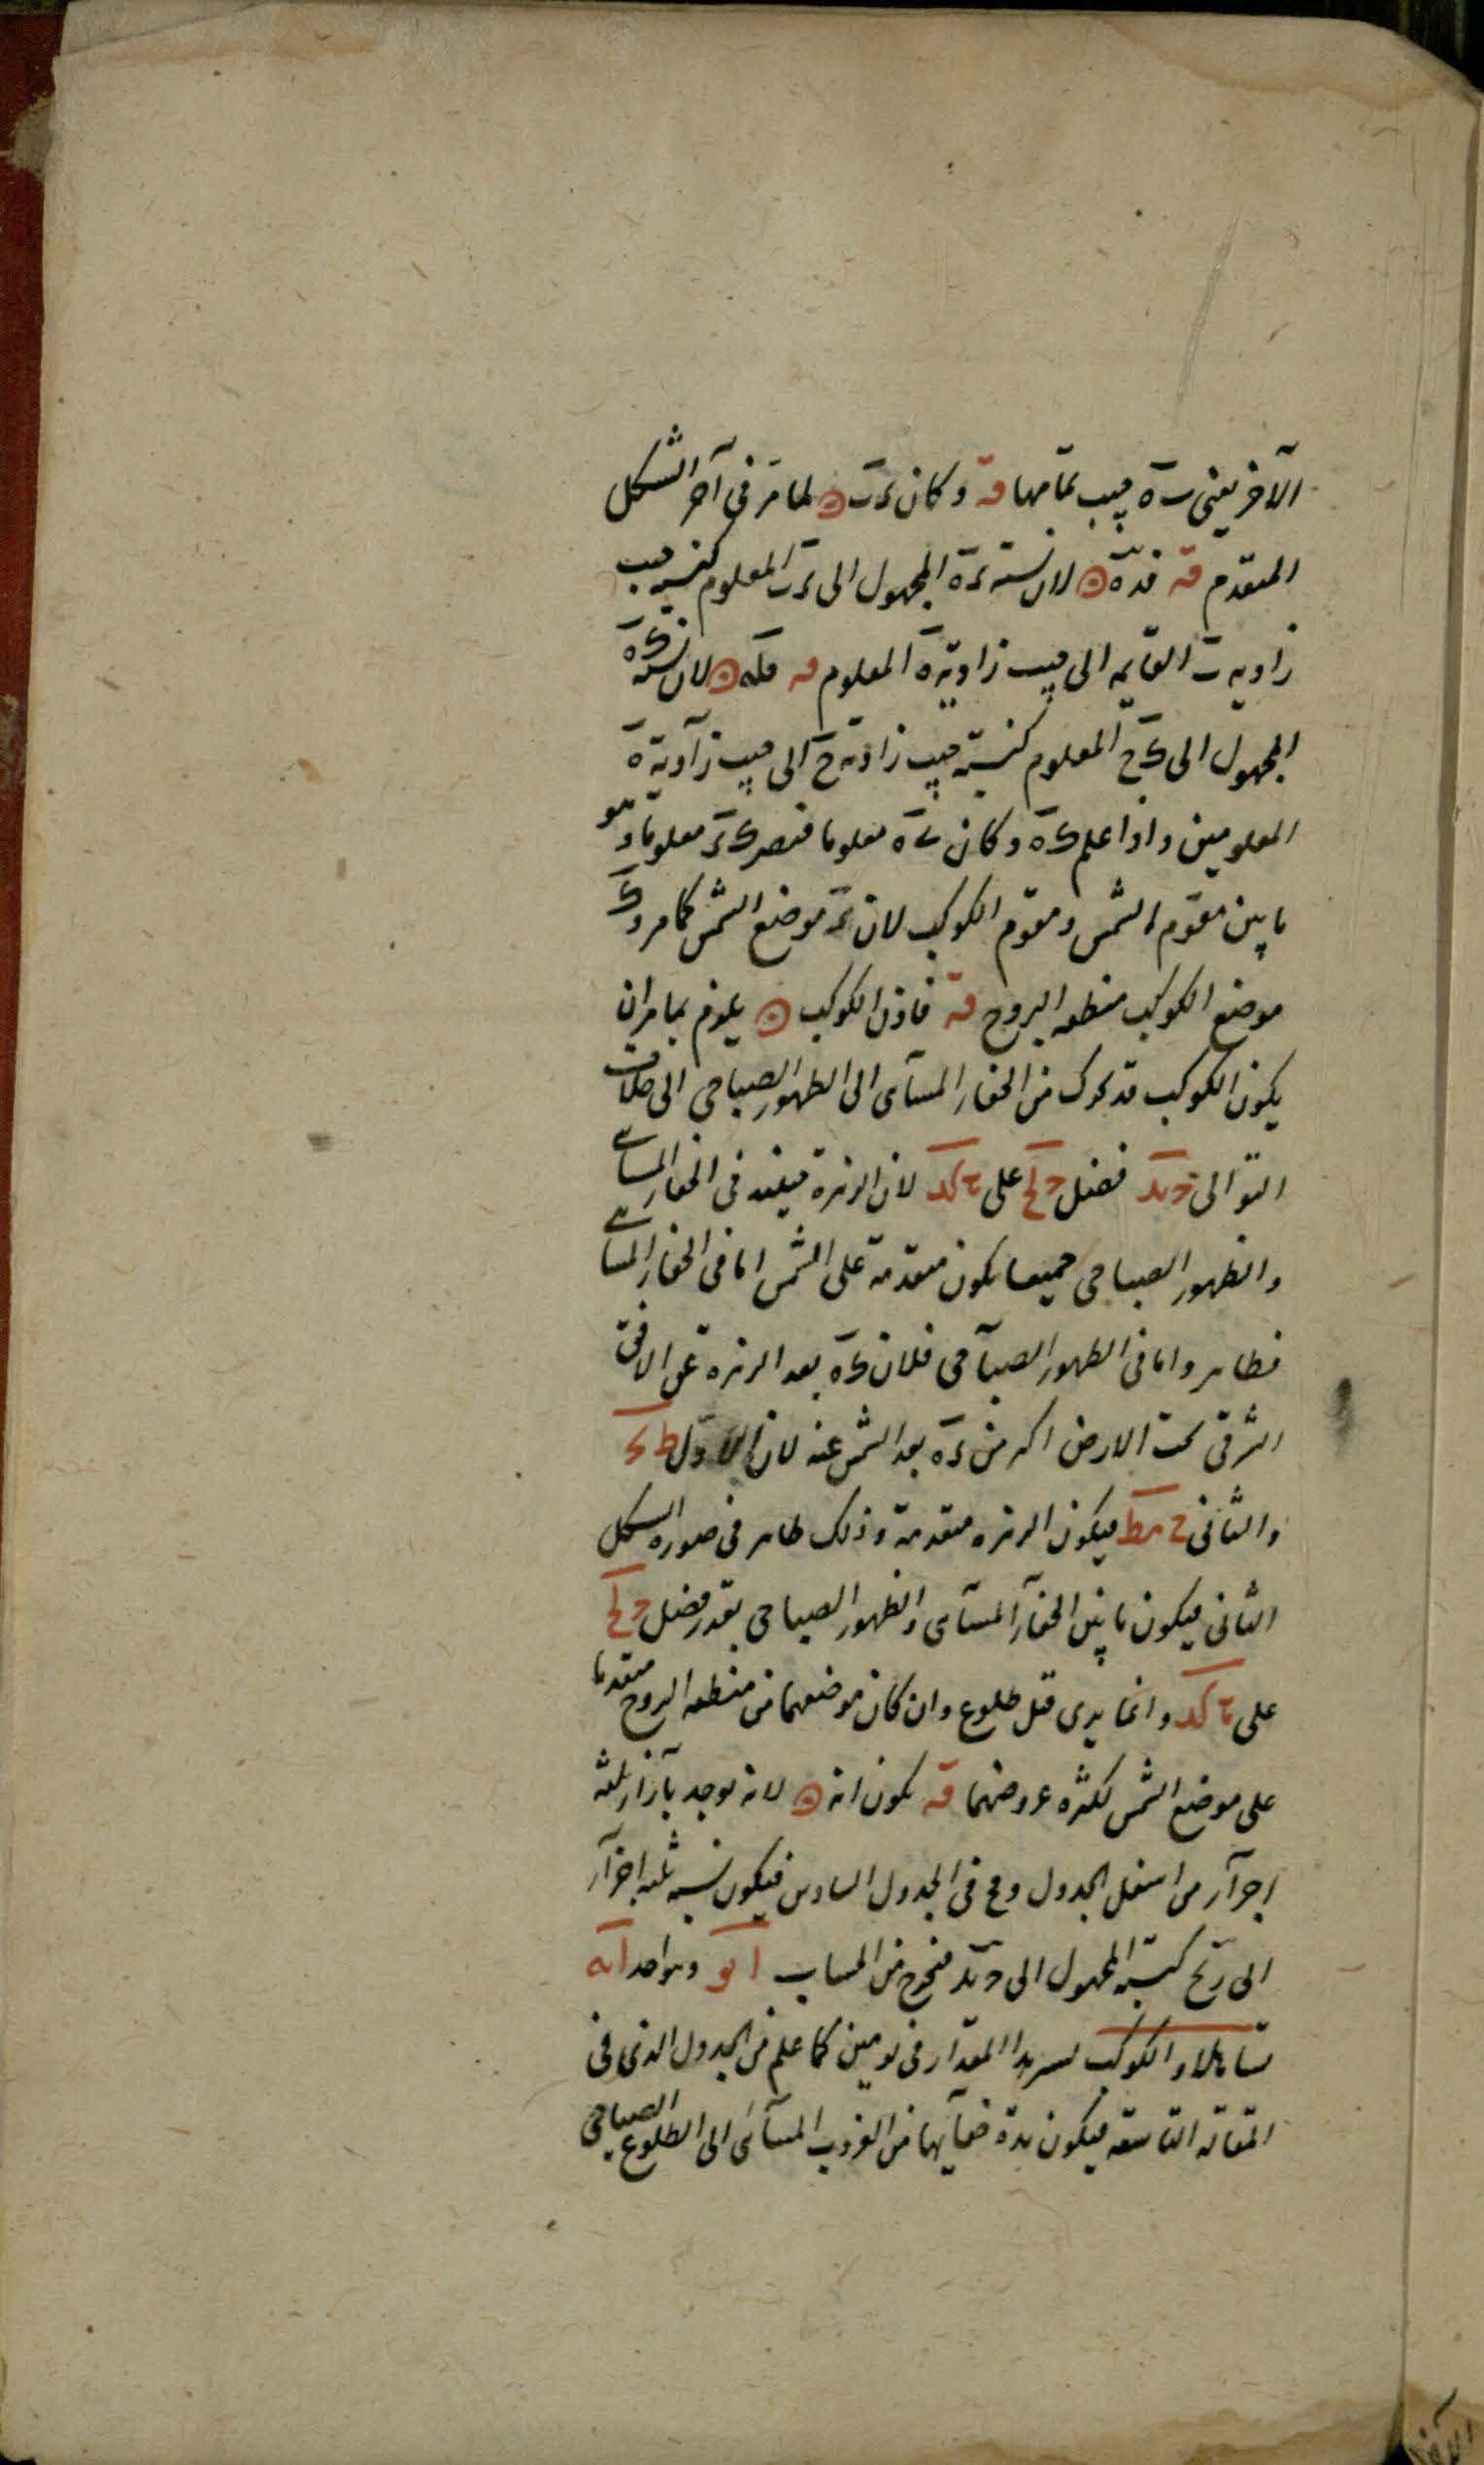 الآخر يعنى ب ه جيب تمامها قه وكان ى ب ۞ لما مر فى آخر الشكل
المتقدم قه فد ه ۞ لان نسبة ى ه المجهول الى ى ب المعلوم كنسبة جيب
زاوية ب القايمه الى جيب زاوية ه المعلوم قه فكه ۞ لان نسبة ك ه
المجهول الى ك ح المعلوم كنسبة جيب زاوية ح الى جيب زاوية ه
المعلومين واذا علم ك ه وكان ى ه معلوما فيصير ك ى معلوما وهو
ما بين مقوم الشمس ومقوم الكوكب لان ى موضع الشمس كما مر و ك
موضع الكوكب منطقه البروج قه فاذن الكوكب ۞ يلزم بما مر ان
يكون الكوكب قد تحرك من الخفاء المسآى الى الظهور الصباحى الى خلاف
التوالى د ند فضل د لح على ى كد لان الزهرة حينئذ فى الخفاء المساى
والظهور الصباحى جميعا يكون متقدمة على الشمس اما فى الخفاء المساى
فظاهر واما فى الظهور الصباحى فلان ك ه بعد الزهرة عن الافق
الشرقى تحت الارض اكبر من ى ه بعد الشمس عنه لان الاول ط ك
والثانى ح مط فيكون الزهره متقدمة وذلك ظاهر فى صوره الشكل
الثانى فيكون ما بين الخفآء المسآى والظهور الصباحى بقدر فضل د لح
على ى كد وانما يرى قبل طلوع وان كان موضعهما من منطقه البروج متقدما
على موضع الشمس لكثره عروضهما قه يكون انه ۞ لانه يوجد بآزاء ثلثه
اجزآء من اسفل الجدول و مح فى الجدول السادس فيكون نسبة ثلثه اجزآء
الى مح كنسبة المجهول الى د ند فيخرج من الحساب ا نو وهو واحد انه
تساهلا والكوكب يسير هذا المقدار فى يومين كما علم من الجدول الذى فى
المقاله التاسعه فيكون مدة خفآيها من الغروب المسآى الى الطلوع الصباحى